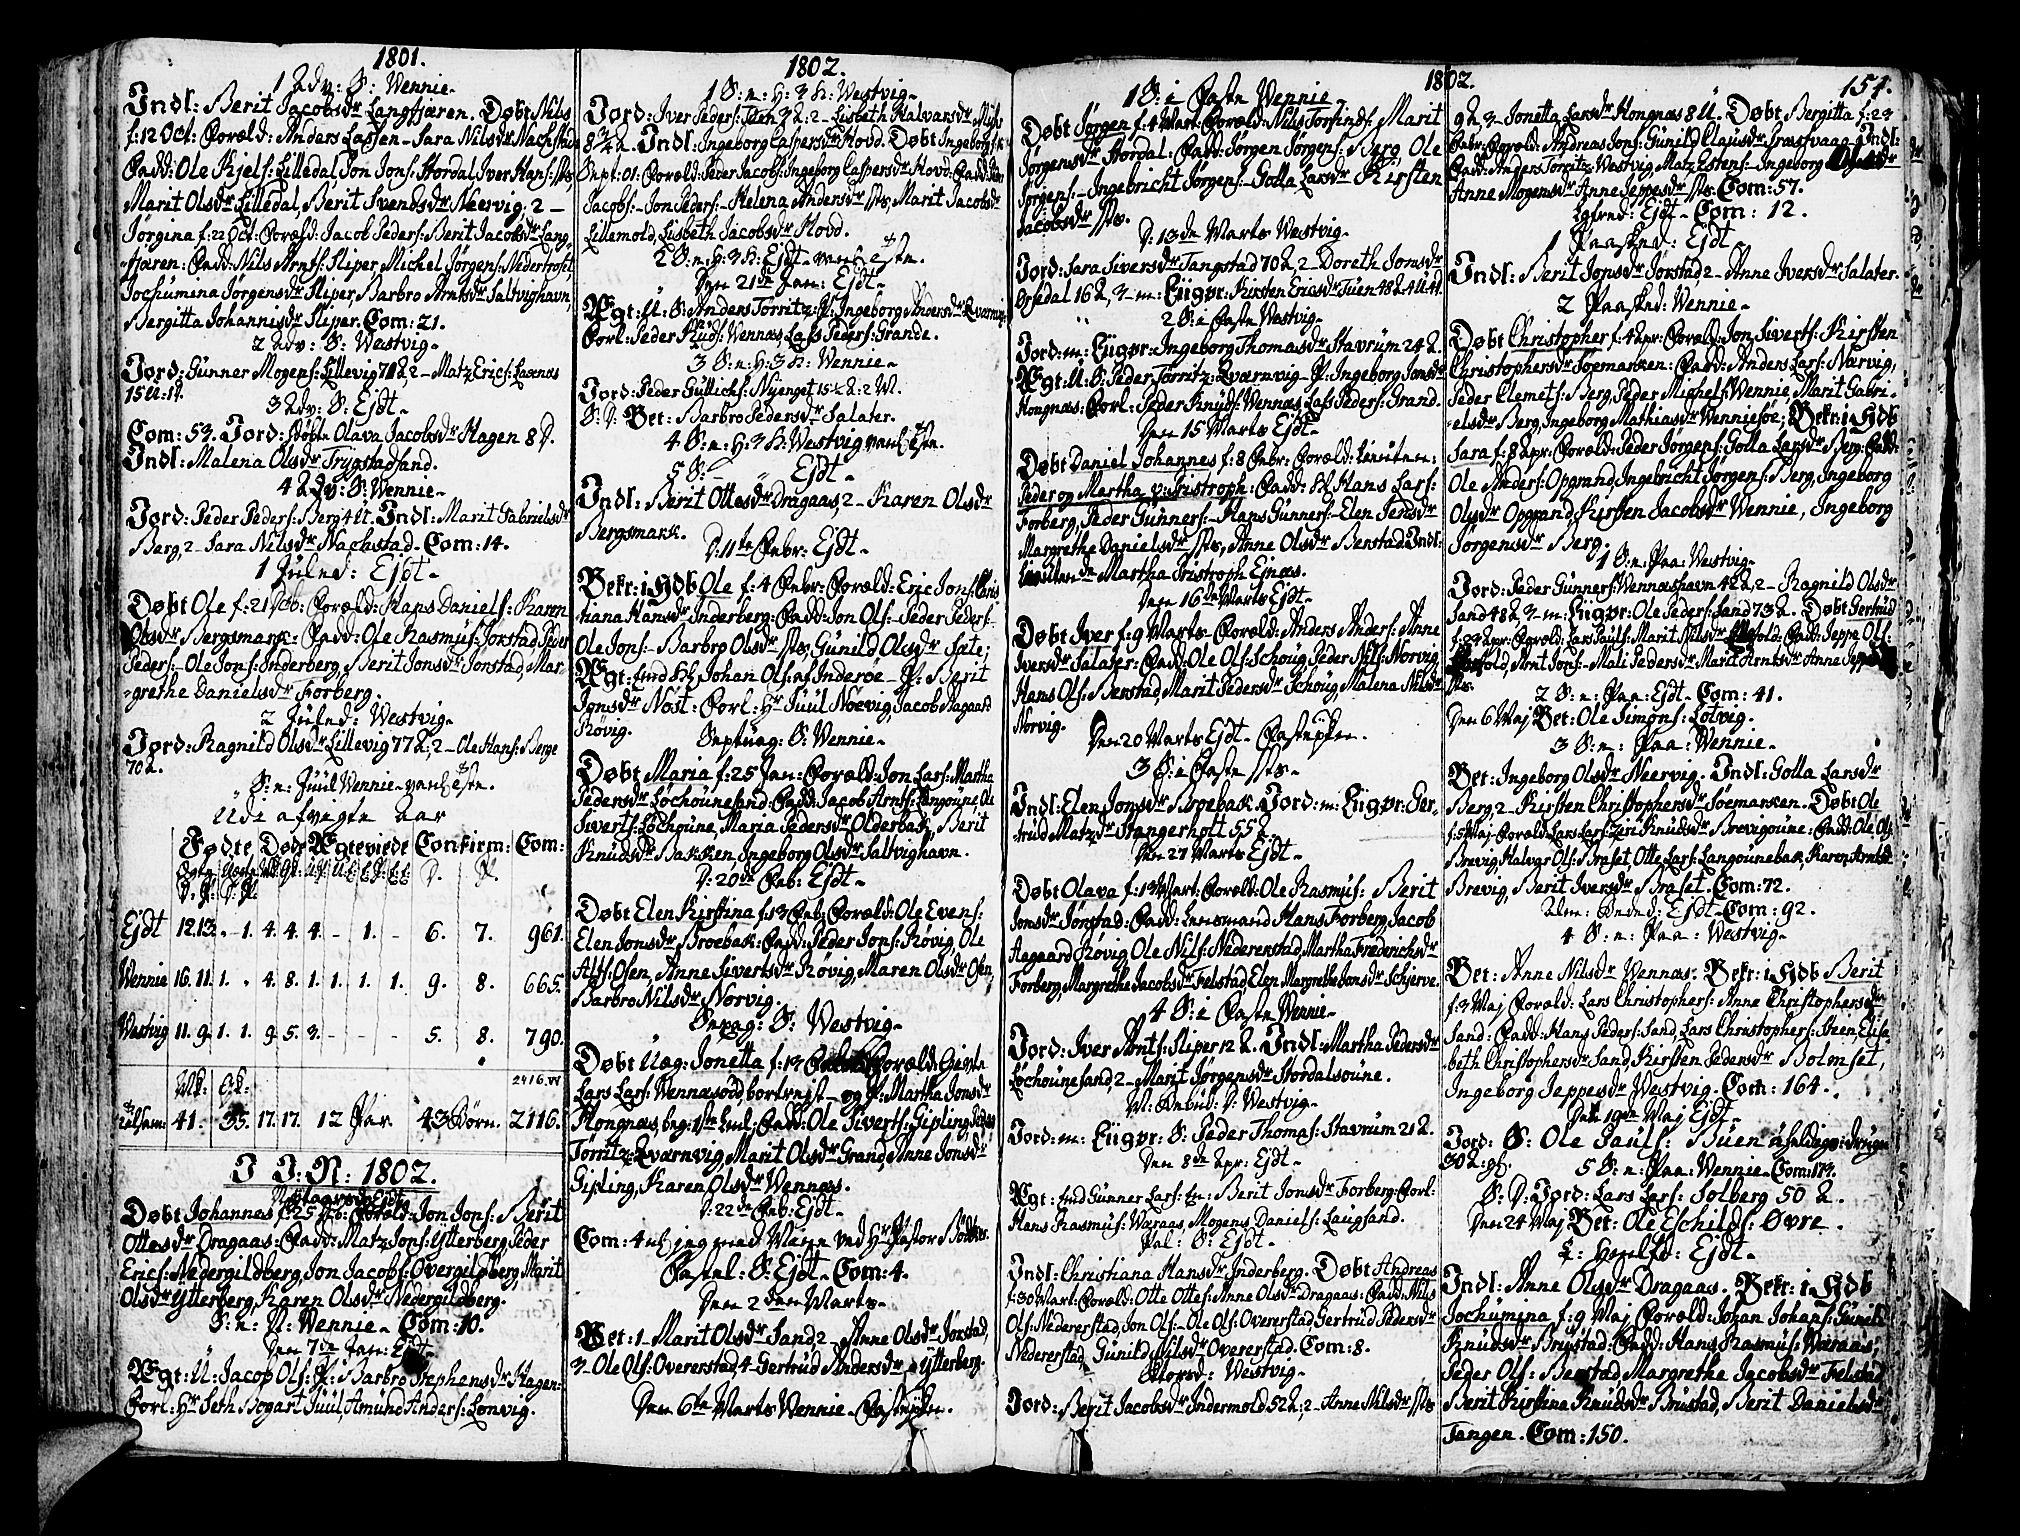 1801.
1 Adv: S: Wennie-
Indl: Berit Jacobsdr Langfjæren. Døbt Nils
f: 12 Oct: Foræld: Anders Larsen- Sara Nilsdr
Fadd: Ole Kjels: Lilledal, Jon Jons: Hordal, Iver Hans: sts,
Marit Olsdr Lilledal, Berit Svendsdr Neervig. 2-
Jørgina f: 22 Oct: Foræld: Jacob Peders: Berit Jacobsdr Lang-
fjæren: Fadd: Nils Arnts: Sliper, Michel Jørgens:
Jochumina Jørgensdr Sliper, Barbro Arntsdr Saltvighavn,
Bergitta Johannisdr Sliper. Com: 21.
2 Adv: S: Westvig-
Jord: Gunner Mogens: Lillevig 71 A 2- Matz Erics: Laxenæs
3 Adv: S: Ejdt-
Com: 53. Jord: Døbte Olava Jacobsdr Hagen 8 D.
Indl: Malena Olsdr Trygstadsand.
4 Adv: S: Wennie-
Jord: Peder Peders: Berg 4 U. Indl: Marit Gabrielsdr
Berg, 2- Sara Nilsdr Nachstad. Com: 14.
1 Juled: Ejdt-
Døbt Ole f: 21 Foræld: Hans Daniels: Karen
Olsdr Bergsmark: Fadd: Ole Rasmus: Jørstad, Peder
Peders:- Ole Jons: Inderberg, Berit Jonsdr Jønstad, Mar-
-grethe Danielsdr Forberg.
2 Juled: Westvig-
Jord: Ragnild Olsdr Lillevig 77 A; 2- Ole Hans: Berge
70 A.
S: n: Juul Wennie-
Udi afvigte Aar
Fødte Døde Ægteviede Confirm: Com:
Ejdt 12. 13. - 1. 4. 4. 4. - 1. - 6. 7. 961.
Wennie 16. 11. 1. . 4. 8. 1. 1. 1. 1. 9. 8. 665.
Westvig 11. 9. 1. 1. 9. 5. 3. - - - 5. 8. 790.
41. 35. 17. 17. 12 Par. 43 Børn. 2416.
I J: N: 1802.
Nytaarsd: Ejdt
Døbt Johannes f: 25 Foræld: Jon Jons: Berit
Ottesdr Dragaas: Fadd: Matz Jons: Ytterberg, Peder
Erics: Nedergildberg, Jon Jacobs: Overgildberg, Marit
Olsdr Ytterberg, Karen Olsdr Nedergildberg.
S: n: N: Wennie- Com: 10.
Den 7de Jan: Ejdt-
Ægt: U: Jacob Ols: P: Barbro Stephensdr Hagen:
Forl: Hr Seth Bogart Juul, Amund Anders: Lonvig.
1802.
1 S: n: H: 3 K: Westvig-
Jord: Iver Peders: Tuen 3 A; 2- Lisbeth Halvarsdr
8 3/4 A. Indl: Ingeborg Caspersdr Hovd. Døbt Ingeborg f:
Sept: 01: Foræld: Peder Jacobs: Ingeborg Caspersdr Hovd: Fadd: Peder
Jacobs:- Jon Peders:- Helena Andersdr sts, Marit Jacobsdr
Lillemold, Lisbeth Jacobsdr Hovd.
2 S: n: H: 3 K: Ejdt-
Den 21de Jan: Ejdt-
Ægt: U: S: Anders Torritz: P: Ingeborg Andersdr Qværnvig
Forl: Peder Knuds: Wennæs, Lars Peders: Grande.
3 S: n: H: 3 K: Wennie-
Jord: Peder Gullichs: Nyenget 15 1/2 A: 2 W.
S: D: Bet: Barbro Pedersdr Salater.
4 S: n: H: 3 K: Westvig
5 S:- Ejdt-
Indl: Berit Ottesdr Dragaas, 2- Karen Olsdr
Bergsmark.
D: 11te Febr: Ejdt-
Bekr: i Hdb Ole f: 4 Febr: Foræld: Eric Jons: Chris
tiana Hansdr Inderberg: Fadd: Jon Ols:- Peder Peders:-
Ole Jons:- Barbro Olsdr sts, Gunild Olsdr Sæte;
Ægt: Johan Ols: af Inderøe- P: Berit
Jonsdr Nøst: Forl: Hr Juul Noevig, Jacob Aagaard
Røvig.
Septuag: S: Wennie-
Døbt Maria f: 25 Jan: Foræld: Jon Lars: Martha
Pedersdr Løchounesand: Fadd: Jacob Arnts: Langoune, Ole
Siverts: Løchoune, Maria Pedersdr Olderbak, Berit
Knudsdr Bakken, Ingeborg Olsdr Saltvighavn.
D: 20de Feb: Ejdt-
Døbt Elen Kirstina f: 13 Feb: Foræld: Ole Evens:
Elen Jonsdr Broebak: Fadd: Peder Jons: Røvig, Ole
Alfs: Osen, Anne Sivertsdr Røvig, Maren Olsdr Osen,
Barbro Nilsdr Norvig.
Sexag: S: Westvig-
Døbt Uæg: Jonetta f: 13 Foræld: Givte
Lars Lars: Wennæsodd, bortreist- og P: Martha Jonsdr
Hongnæs, beg: 1ste Leml: Fadd: Ole Siverts: Gipling, Peder
Torritz: Qværnvig, Marit Olsdr Grand, Anne Jonsdr
Gipling, Karen Olsdr Wennæs.
D: 22de Feb: Ejdt-
Com: 4 jeg med Wærge ved Hr Pastor
Fastel: S: Ejdt- Com: 4.
Den 2den Marts-
Bet: 1- Marit Olsdr Sand 2- Anne Olsdr Jøxstad,
3- Ole Ols: Overerstad, 4- Gertrud Andersdr Ytterberg.
Den 6te Marts Wennie-
1802.
1 S: i Faste Wennie
Døbt Jørgen f: 4 Mart: Foræld: Nils Torfinds: Marit
Jørgensdr Hordal: Fadd: Jørgen Jørgens: Berg, Ole
Jørgens:- Ingebricht Jørgens:- Golla Larsdr Kirsten
Jacobsdr sts.
D: 13de Marts Westvig-
Jord: Sara Siversdr Tangstad 70 A, 2- Doreth Jonsdr
Orsedal 16 A, 3- m: Liigpr: Kirsten Ericsdr Tuen 48 A 4 U 4 d.
2 S: i Faste Westvig-
Jord: m: Liigpr: Ingeborg Thomasdr Stavrum 24 A.
Ægt: U: S: Peder Torritz: Qværnvig- P: Ingeborg Jonsdr
Hongnæs: Forl: Peder Knuds: Wennæs, Lars Peders: Grand.
Den 15 Marts Ejdt-
Døbt Daniel Johannes f: 8 Febr: Foræld: Lieutnn:
Peder og Martha v: Tristroph: Fadd: Hans Lars:
Forberg, Peder Gunners:- Hans Gunners:- Elen Jensdr
Margrethe Danielsdr sts, Anne Olsdr Berstad. Indl:
Martha Tristroph Ejnæs.
Den 16de Marts Ejdt-
Døbt Iver f: 9 Marts- Foræld: Anders Anders: Anne
Iversdr Salater: Fadd: Ole Ols: Schoug, Peder Nils: Norvig,
Hans Ols: Berstad, Marit Pedersdr Schoug, Malena Nilsdr
Norvig.
Den 20 Marts Ejdt-
3 S: i Faste sts-
Indl: Elen Jonsdr Broebak. Jord: m: Liigpr: Ger-
trud Matzdr Stangerholt 55 A.
Den 27 Marts Ejdt-
Døbt Olava f: 13 Mart: Foræld: Ole Rasmus: Berit
Jonsdr Jønstad: Fadd: Lensmand Hans Forberg, Jacob
Aagaard Røvig, Ole Nils: Nedererstad, Martha Frederichsdr
Forberg, Margrethe Jacobsdr Felstad, Elen Margrethe Schjerve.
4 S: i Faste Wennie-
Jord: Iver Arnts: Sliper 12 A. Indl: Martha Pedersdr
Løchounesand 2- Marit Jørgensdr Hordalsoune.
M: Bebud: D: Westvig-
Jord: m: Liigpr: S: Peder Thomas: Stavrum 21 A.
Den 8de Apr: Ejdt-
Ægt: Gunner Lars: Berit Jonsdr Forberg: Forl:
Hans Rasmus: Wæraas, Mogens Daniels: Laugsand.
Pal: S: Ejdt-
Indl: Christiana Hansdr Inderberg. Døbt Andreas
f: 30 Mart: Foræld: Otte Ottes: Anne Olsdr Dragaas: Fadd: Nils
Ols: Nedererstad, Jon Ols:- Ole Ols: Overerstad, Gertrud Pedersdr
Nedererstad, Gunild Nilsdr Overerstad. Com: 8.
Skiærd: Westvig-
Jord: Berit Jacobsdr Indermold 52 A; 2- Anne Nilsdr sts
1802.
154.
9 A 3- Jonetta Larsdr Hongnæs 8 U. Døbt Bergitta f: 23
Febr: Foræld: Andreas Jons: Gunild Clausdr Indl:
Fadd: Anders Torritz: Westvig, Matz Estens:- Ingeborg Olsdr
Anne Mogensdr Anne Jeppesdr sts. Com: 57.
Lgfred: Ejdt- Com: 12.
1 Paasked: Ejdt-
Indl: Berit Jonsdr Jørstad, 2- Anne Iversdr Salater.
2 Paasked: Wennie-
Døbt Christopher f: 4 Apr: Foræld: Jon Siverts: Kirsten
Christophersdr Soemarken: Fadd: Anders Lars: Nærvig,
Peder Clemets: Berg, Peder Michels: Wennie, Marit Gabri-
-elsdr Berg, Ingeborg Mathiasdr Wenniesoe; Bekr: i Hdb
Sara f: 8 Apr: Foræld: Peder Jørgens: Golla Larsdr Berg: Fadd:
Ole Anders: Opgrand, Ingebricht Jørgens: Berg, Ingeborg
Olsdr Opgrand, Kirsten Jacobsdr Wennie, Ingeborg
Jørgensdr Berg.
1 S: n: Paa: Westvig-
Jord: Peder Gunners: Wennæshavn 42 A, 2- Ragnild Olsdr
Sand 48 A 3- m: Liigpr: Ole Peders: Sand 73 A. Døbt Gertrud
f: 23 Apr: Foræld: Lars Pauls: Marit Nilsdr Fadd: Jeppe Ols:
Arnt Jons:- Mali Pedersdr Marit Arntsdr Anne
sts.
2 S: n: Paa: Ejdt- Com: 41.
Den 6 Maj Bet: Ole Simons: Lotvig.
3 S: n: Paa: Wennie-
Bet: Ingeborg Olsdr Neervig. Indl: Golla Larsdr
Berg, 2- Kirsten Christophersdr Soemarken. Døbt Ole
f: 5 Maj- Foræld: Lars Lars: Beri Knudsdr Brevigoune: Fadd: Ole Ols:
Brevig, Halvar Ols: Braset, Otte Lars: Langounebak, Karen Arntsdr
Brevig, Berit Iversdr Braset. Com: 72.
2den Beded: Ejdt- Com: 92.
4 S: n: Paa: Westvig-
Bet: Anne Nilsdr Wennæs. Bekr: i Hdb Berit
f: 3 Maj Foræld: Lars Christophers: Anne Christophersdr
Sand: Fadd: Hans Peders: Sand, Lars Christophers: Steen, Elisa
beth Christophersdr Sand, Kirsten Pedersdr Bolmset,
Ingeborg Jeppesdr Westvig. Com: 164.
Den 19de Maj Ejdt-
Jord: S: Ole Pauls: Buen
30 A: gl. 5 S: n: Paa: Wennie- Com: 173.
S: D: Jord: Lars Lars: Solberg 50 A.
Den 24 Maj Bet: Ole Eschilds: Øvre.
Ejdt-
Indl: Anne Olsdr Dragaas. Bekr: i Hdb
Jochumina f: 9 Maj Foræld: Johan Johans: Gunild
Knudsdr Brustad: Fadd: Hans Rasmus: Wæraas,
Peder Ols: Berstad, Margrethe Jacobsdr Felstad
Berit Kirstina Knudsdr Brustad, Berit Danielsdr
Tangen. Com: 150.